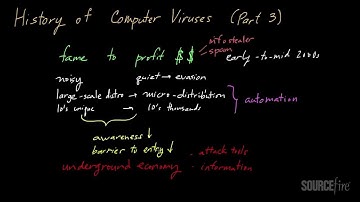 History of Computer Viruses (Part 3)
infostealer
spam
fame to profit $$ early-to-mid 2000s
noisy quiet → evasion
large-scale distro → micro-distribution
10's unique 10's thousands
automation
awareness ↓
barrier to entry ↓ · attack tools
underground economy · information
SOURCEfire